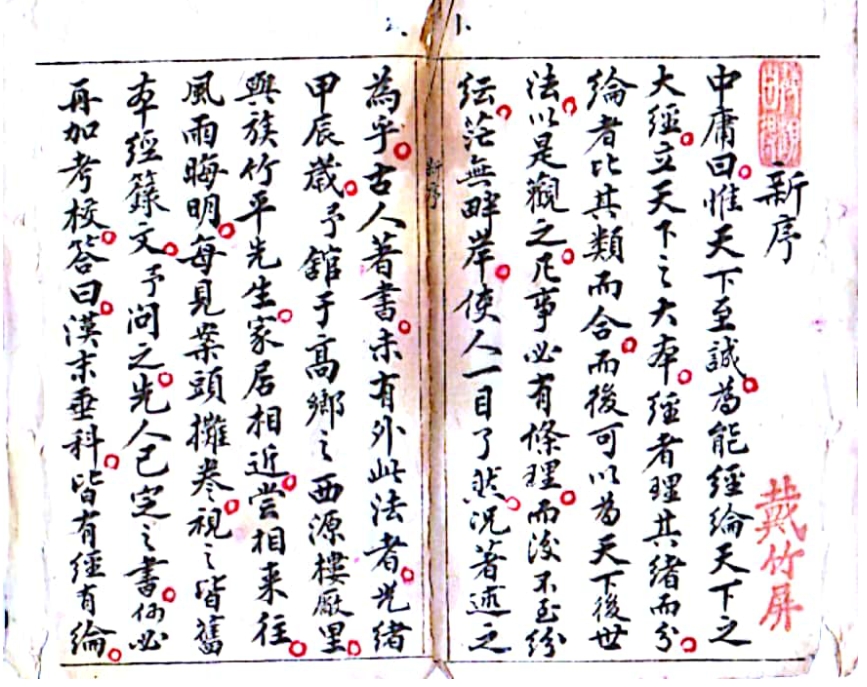 1.
新序
戴竹屏
中庸曰惟天下至誠為能經綸天下之
大經立天下之大本經者理其緒而分
綸者比其類而合而後可以為天下後世
法以是觀之凡事必有條理而後不至紛
紜茫無畔岸使人一目了然況著述之
新序
2.
為乎古人著書未有外此法者光緒
甲辰歲予舘于高鄉之西源樓厫里
與族竹平先生家居相近嘗相來往
風雨晦明每見案頭攤卷視之皆舊
本經籙文予問之先人已定之書何必
再加考校答曰漢末垂科皆有經有綸